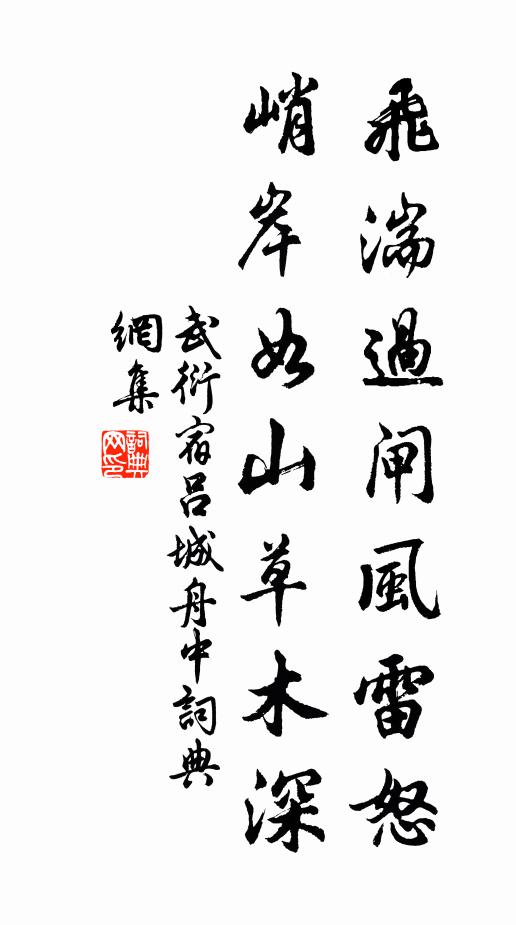 飛湍過閘風雷怒
峭岸如山草木深
武衍宿呂城舟中詞典
網集
詞典
网印